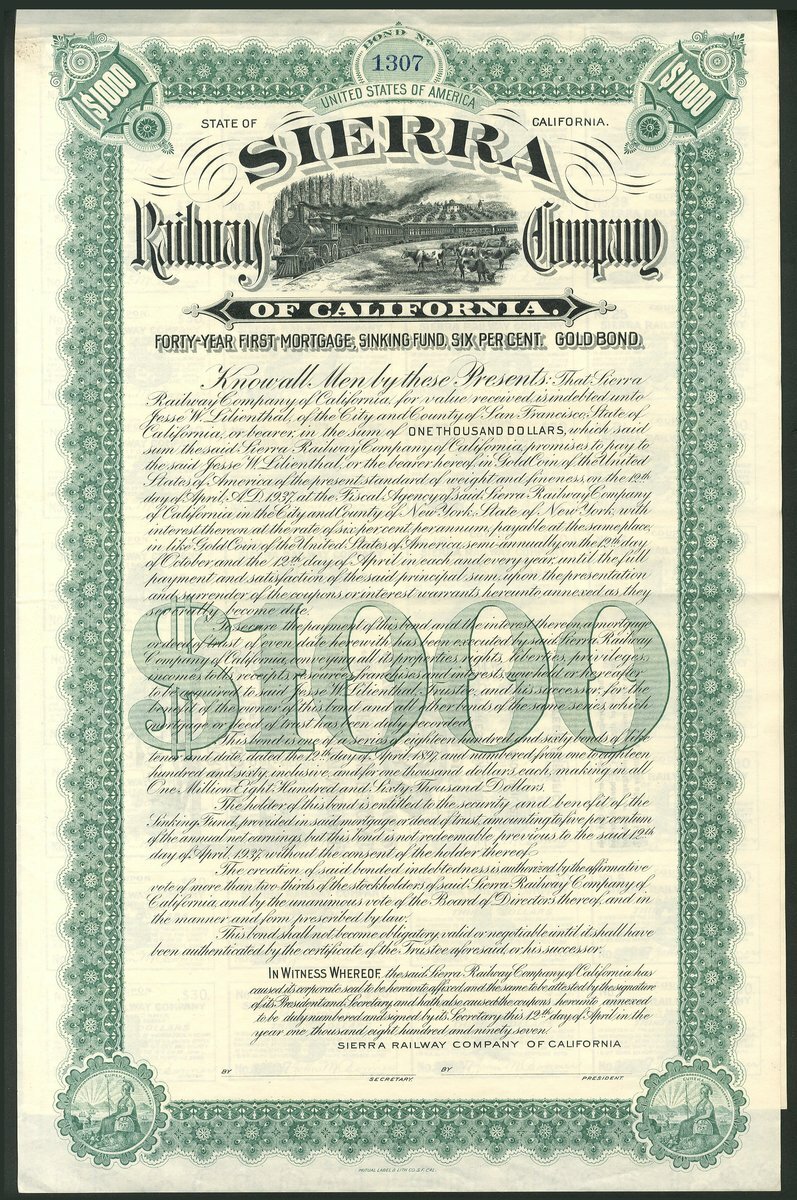 BOND No
1307
UNITED STATES OF AMERICA
$1000
$1000
STATE OF CALIFORNIA.
SIERRA
Railway Company
OF CALIFORNIA.
FORTY-YEAR FIRST MORTGAGE, SINKING FUND, SIX PER CENT. GOLD BOND.
Know all Men by these Presents: That Sierra
Railway Company of California, for value received, is indebted unto
Jesse W. Lilienthal, of the City and County of San Francisco, State of
California, or bearer, in the sum of ONE THOUSAND DOLLARS, which said
sum the said Sierra Railway Company of California, promises to pay to
the said Jesse W. Lilienthal, or the bearer hereof, in Gold Coin of the United
States of America of the present standard of weight and fineness, on the 12th
day of April, A.D. 1937, at the Fiscal Agency of said Sierra Railway Company
of California, in the City and County of New York, State of New York, with
interest thereon at the rate of six per cent. per annum, payable at the same place,
in like Gold Coin of the United States of America, semi-annually, on the 12th day
of October, and the 12th day of April, in each and every year, until the full
payment and satisfaction of the said principal sum, upon the presentation
and surrender of the coupons or interest warrants hereunto annexed as they
severally become due.
$1000
To secure the payment of this bond and the interest thereon, a mortgage
or deed of trust of even date herewith has been executed by said Sierra Railway
Company of California, conveying all its properties, rights, liberties, privileges,
incomes, tolls, receipts, resources, franchises and interests, now held or hereafter
to be acquired, to said Jesse W. Lilienthal, Trustee, and his successor, for the
benefit of the owner of this bond and all other bonds of the same series, which
mortgage or deed of trust has been duly recorded.
This bond is one of a series of eighteen hundred and sixty bonds of like
tenor and date, dated the 12th day of April, 1897, and numbered from one to eighteen
hundred and sixty, inclusive, and for one thousand dollars each, making in all
One Million Eight Hundred and Sixty Thousand Dollars.
The holder of this bond is entitled to the security and benefit of the
Sinking Fund, provided in said mortgage or deed of trust, amounting to five per centum
of the annual net earnings, but this bond is not redeemable previous to the said 12th
day of April, 1937, without the consent of the holder thereof.
The creation of said bonded indebtedness is authorized by the affirmative
vote of more than two-thirds of the stockholders of said Sierra Railway Company of
California, and by the unanimous vote of the Board of Directors thereof, and in
the manner and form prescribed by law.
This bond shall not become obligatory, valid or negotiable until it shall have
been authenticated by the certificate of the Trustee aforesaid, or his successor.
IN WITNESS WHEREOF, the said Sierra Railway Company of California has
caused its corporate seal to be hereunto affixed, and the same to be attested by the signature
of its President and Secretary, and hath also caused the coupons hereunto annexed
to be duly numbered and signed by its Secretary this 12th day of April, in the
year one thousand eight hundred and ninety seven.
SIERRA RAILWAY COMPANY OF CALIFORNIA
BY BY
SECRETARY. PRESIDENT.
EUREKA
EUREKA
MUTUAL LABEL & LITH CO. S.F., CAL.